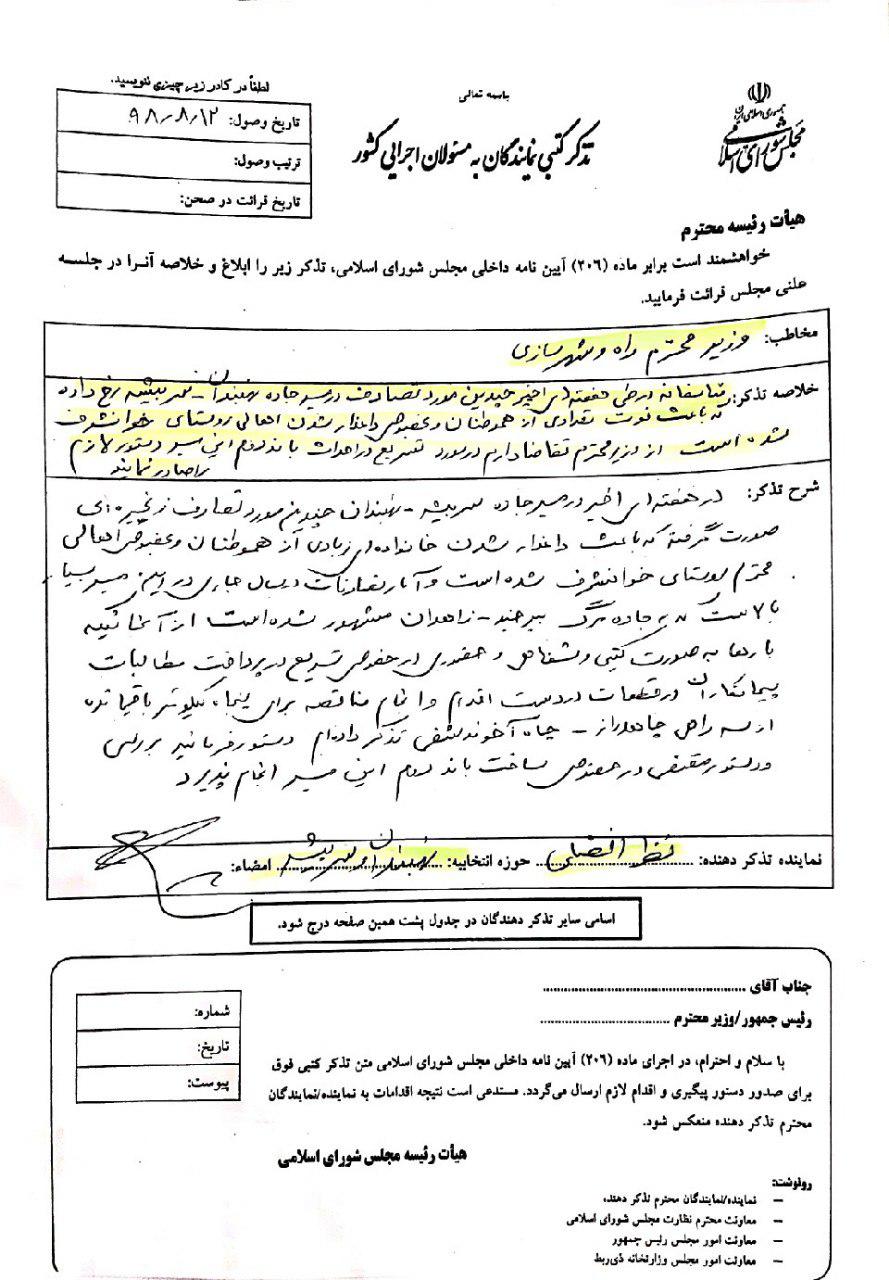 لطفاً در کادر زیر چیزی ننویسید.
باسمه تعالی
جمهوری اسلامی ایران
مجلس شورای اسلامی
تذکر کتبی نمایندگان به مسئولان اجرایی کشور
تاریخ وصول: ۹۸/۸/۱۲
ترتیب وصول:
تاریخ قرائت در صحن:
هیأت رئیسه محترم
خواهشمند است برابر ماده (۲۰۶) آیین نامه داخلی مجلس شورای اسلامی، تذکر زیر را ابلاغ و خلاصه آنرا در جلسه
علنی مجلس قرائت فرمایید.
مخاطب: وزیر محترم راه و شهرسازی
خلاصه تذکر: متاسفانه در طی هفته های اخیر چندین مورد تصادف در مسیر جاده نهبندان - سربیشه رخ داده
که باعث فوت تعدادی از هموطنان و بخصوص داغدار شدن اهالی روستای خوانشرف
شده است از وزیر محترم تقاضا دارم در مورد تسریع در احداث باند دوم این مسیر دستور لازم
را صادر نمایند
شرح تذکر: در هفته های اخیر در مسیر جاده سربیشه - نهبندان چندین مورد تصادف زنجیره ای
صورت گرفته که باعث داغدار شدن خانواده های زیادی از هموطنان و بخصوص اهالی
محترم روستای خوانشرف شده است و آمار تصادفات در سال جاری در این مسیر بسیار
بالاست که به جاده مرگ بیرجند - زاهدان مشهور شده است از آنجائیکه
بارها به صورت کتبی و شفاهی و حضوری در خصوص تسریع در پرداخت مطالبات
پیمانکاران در قطعات در دست اقدام و انجام مناقصه برای پنجاه کیلومتر باقیمانده
از سه راهی چاهدراز - چاه آخوند تذکر داده‌ام دستور فرمائید بررسی
و دستور مقتضی در خصوص ساخت باند دوم این مسیر انجام پذیرد
نماینده تذکر دهنده: نظر افضلی حوزه انتخابیه: نهبندان و سربیشه امضاء:
اسامی سایر تذکر دهندگان در جدول پشت همین صفحه درج شود.
جناب آقای
رئیس جمهور/وزیر محترم
شماره:
تاریخ:
پیوست:
با سلام و احترام، در اجرای ماده (۲۰۶) آیین نامه داخلی مجلس شورای اسلامی متن تذکر کتبی فوق
برای صدور دستور پیگیری و اقدام لازم ارسال می‌گردد. مستدعی است نتیجه اقدامات به نماینده/نمایندگان
محترم تذکر دهنده منعکس شود.
هیأت رئیسه مجلس شورای اسلامی
رونوشت:
– نماینده/نمایندگان محترم تذکر دهنده
– معاونت محترم نظارت مجلس شورای اسلامی
– معاونت امور مجلس رئیس جمهور
– معاونت امور مجلس وزارتخانه ذی‌ربط